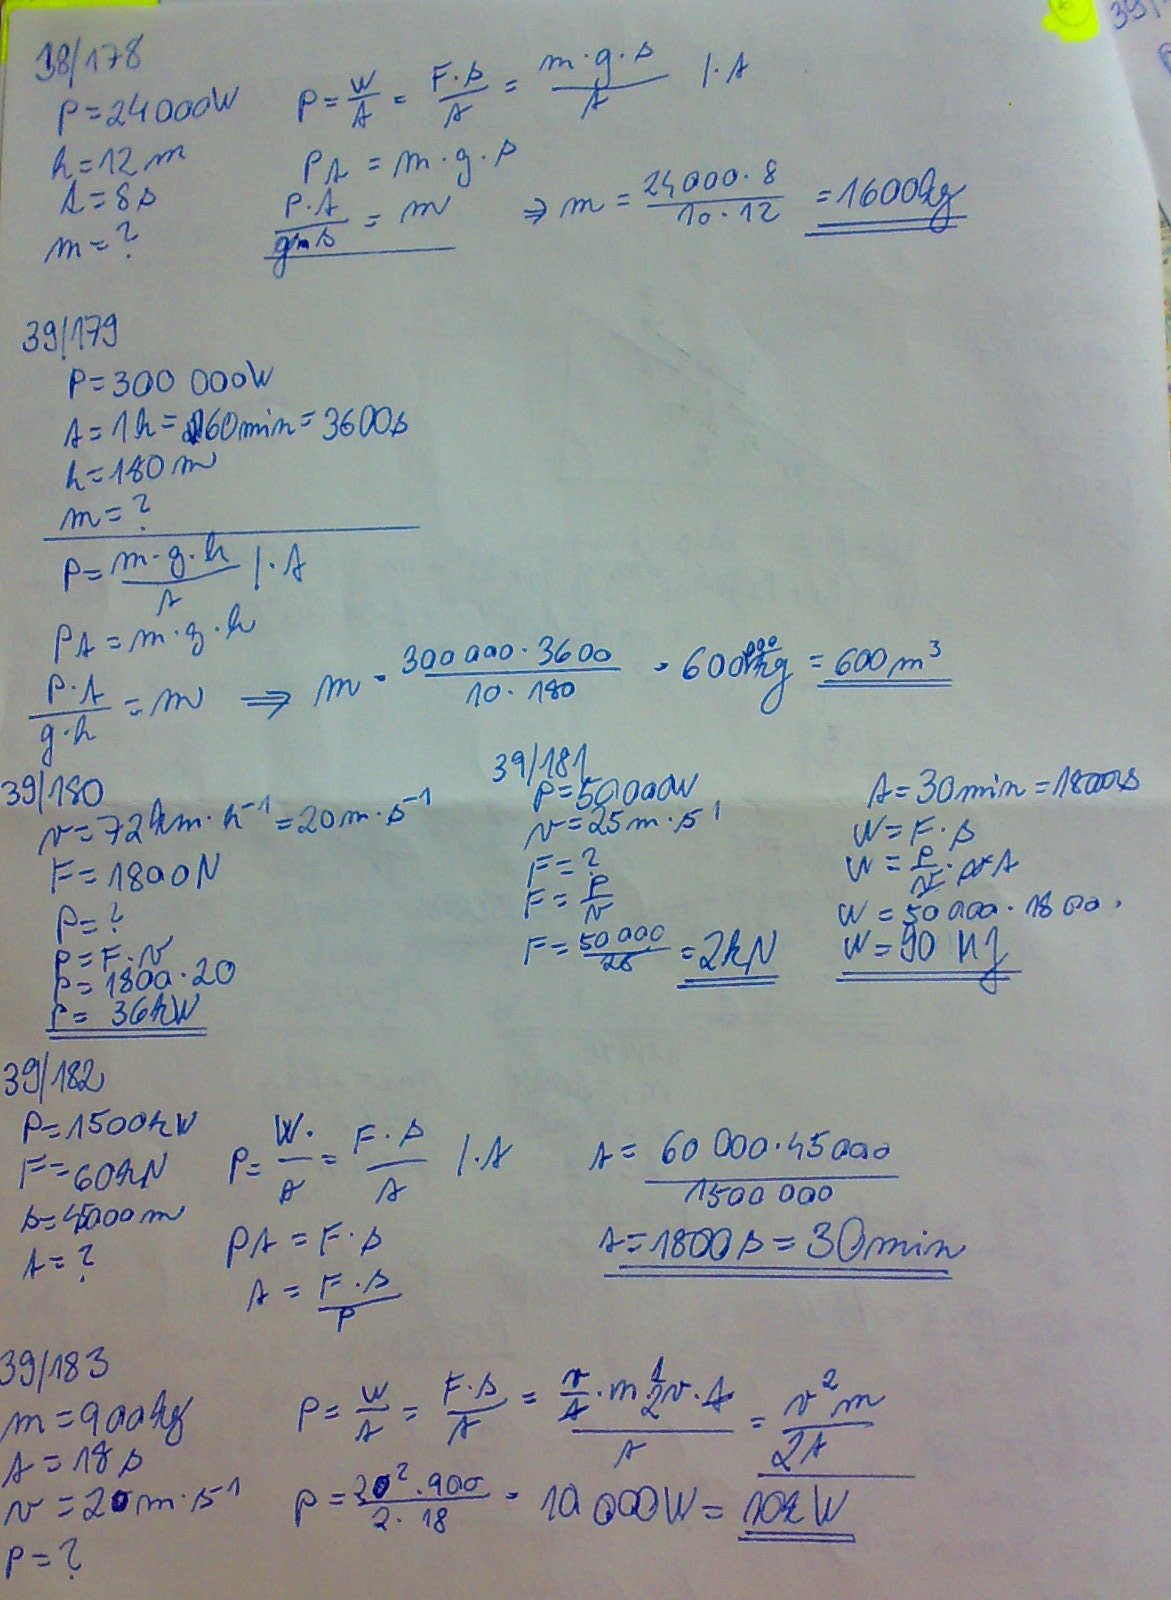 38/178
P=24000W
h=12m
t=8s
m=?
P=W/t=F·s/t=m·g·s/t |·t
Pt=m·g·s
P·t/g·s=m ⇒ m=24000·8/10·12=1600kg
39/179
P=300 000W
t=1h=60min=3600s
h=180m
m=?
P=m·g·h/t |·t
Pt=m·g·h
P·t/g·h=m ⇒ m=300 000·3600/10·180=600 000kg=600m³
39/180
v=72km·h⁻¹=20m·s⁻¹
F=1800N
P=?
P=F·v
P=1800·20
P=36kW
39/181
P=50000W
v=25m·s⁻¹
F=?
F=P/v
F=50 000/25=2kN
t=30min=1800s
W=F·s
W=P/v·v·t
W=50 000·1800
W=90 MJ
39/182
P=1500kW
F=60kN
s=45000m
t=?
P=W/t=F·s/t |·t
Pt=F·s
t=F·s/P
t=60 000·45000/1500 000
t=1800s=30min
39/183
m=900kg
t=18s
v=20m·s⁻¹
P=?
P=W/t=F·s/t=v/t·m·1/2v·t/t=v²m/2t
P=20²·900/2·18=10 000W=10kW